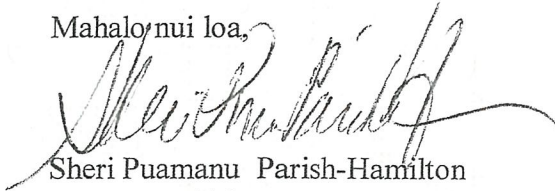 Mahalo nui loa,
Sheri Puamanu Parish-Hamilton